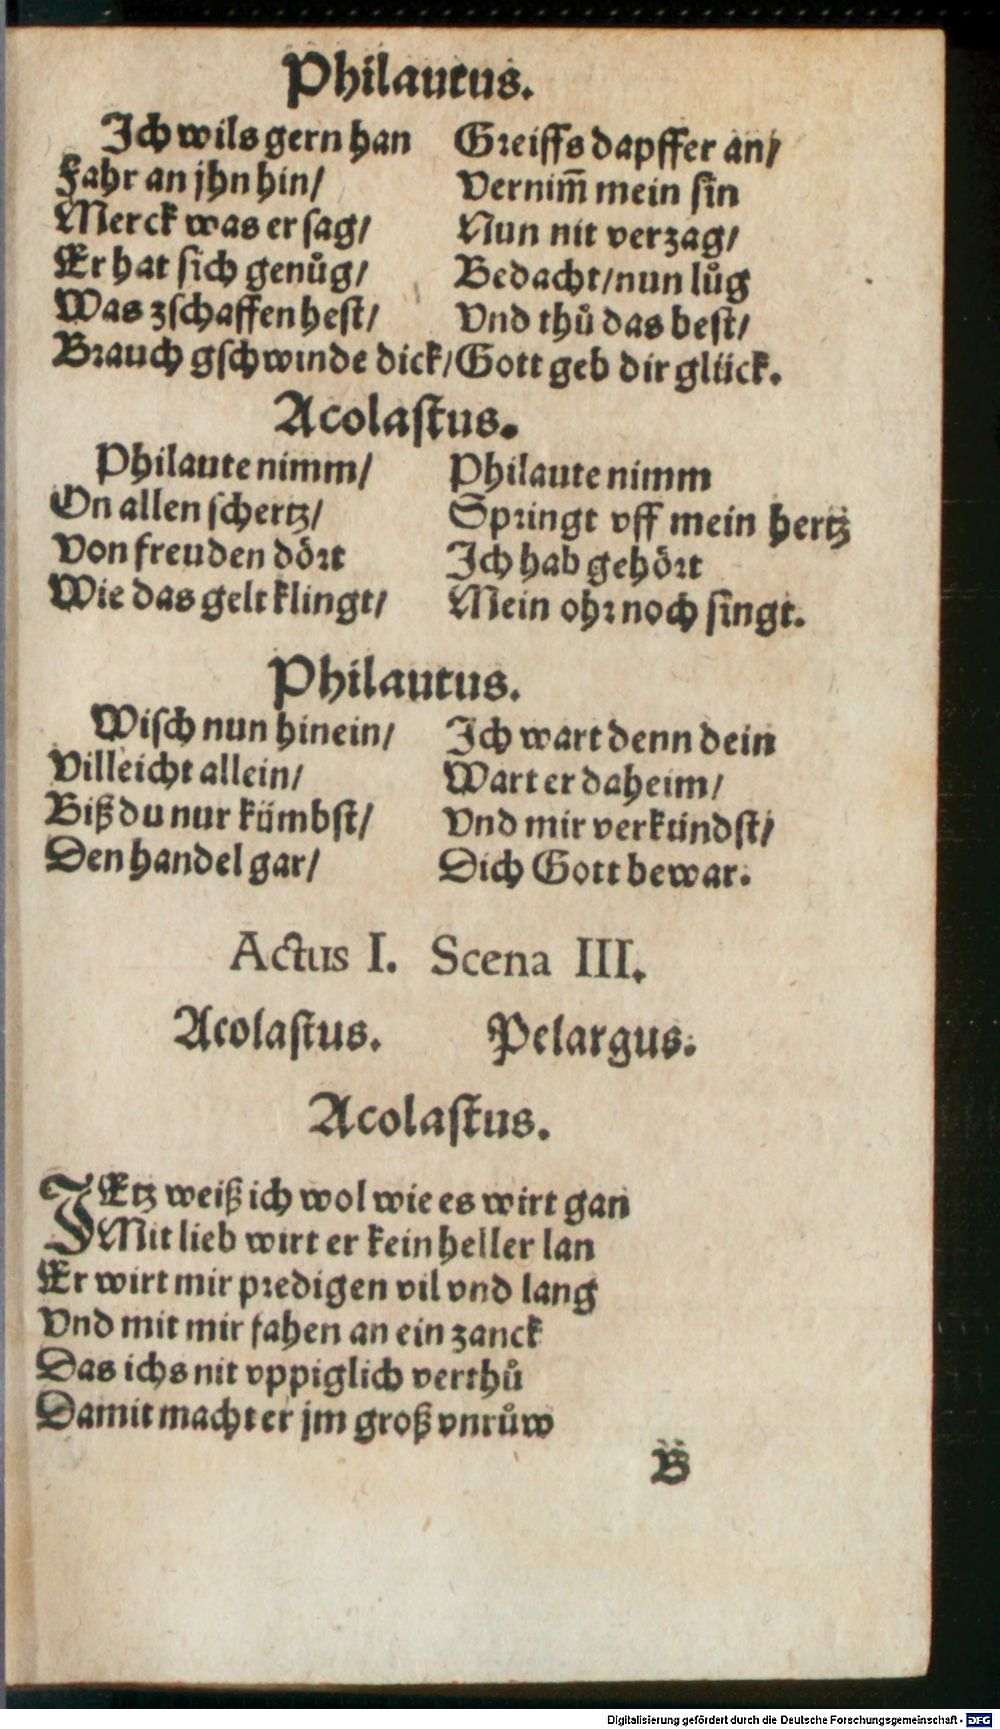 Philautus.
Ich wils gern han Greiffs dapffer an/
Fahr an jhn hin/ Vernim̄ mein sin
Merck was er sag/ Nun nit verzag/
Er hat sich genůg/ Bedacht/nun lůg
Was zschaffen hest/ Vnd thů das best/
Brauch gschwinde dick/ Gott geb dir glück.
Acolastus.
Philaute nimm/ Philaute nimm
On allen schertz/ Springt vff mein hertz
Von freuden dört Ich hab gehört
Wie das gelt klingt/ Mein ohr noch singt.
Philautus.
Wisch nun hinein/ Ich wart denn dein
Villeicht allein/ Wart er daheim/
Biß du nur kümbst/ Vnd mir verkündst/
Den handel gar/ Dich Gott bewar.
Actus I. Scena III.
Acolastus. Pelargus.
Acolastus.
IEtz weiß ich wol wie es wirt gan
Mit lieb wirt er kein heller lan
Er wirt mir predigen vil vnd lang
Vnd mit mir fahen an ein zanck
Das ichs nit vppiglich verthů
Damit macht er jm groß vnrůw
B
Digitalisierung gefördert durch die Deutsche Forschungsgemeinschaft - DFG